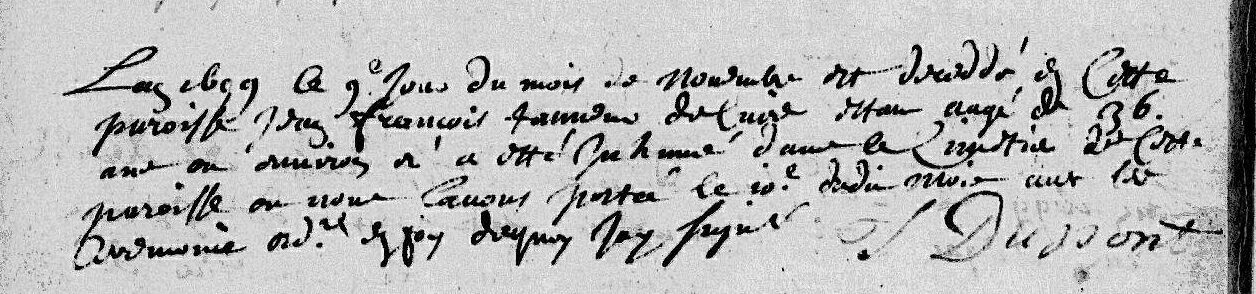 Lan 1699 le 9e Jour du mois de novembre est decedé en Cette
paroisse Jean françois tanneur de Cuire estan aagé de 36
ans ou environ et a esté Inhumé dans le Cimetiere de Cette
paroisse ou nous lavons porté le 10e dudit mois avec les
Ceremonie ordres en foy dequoy Jay signé S Dupont